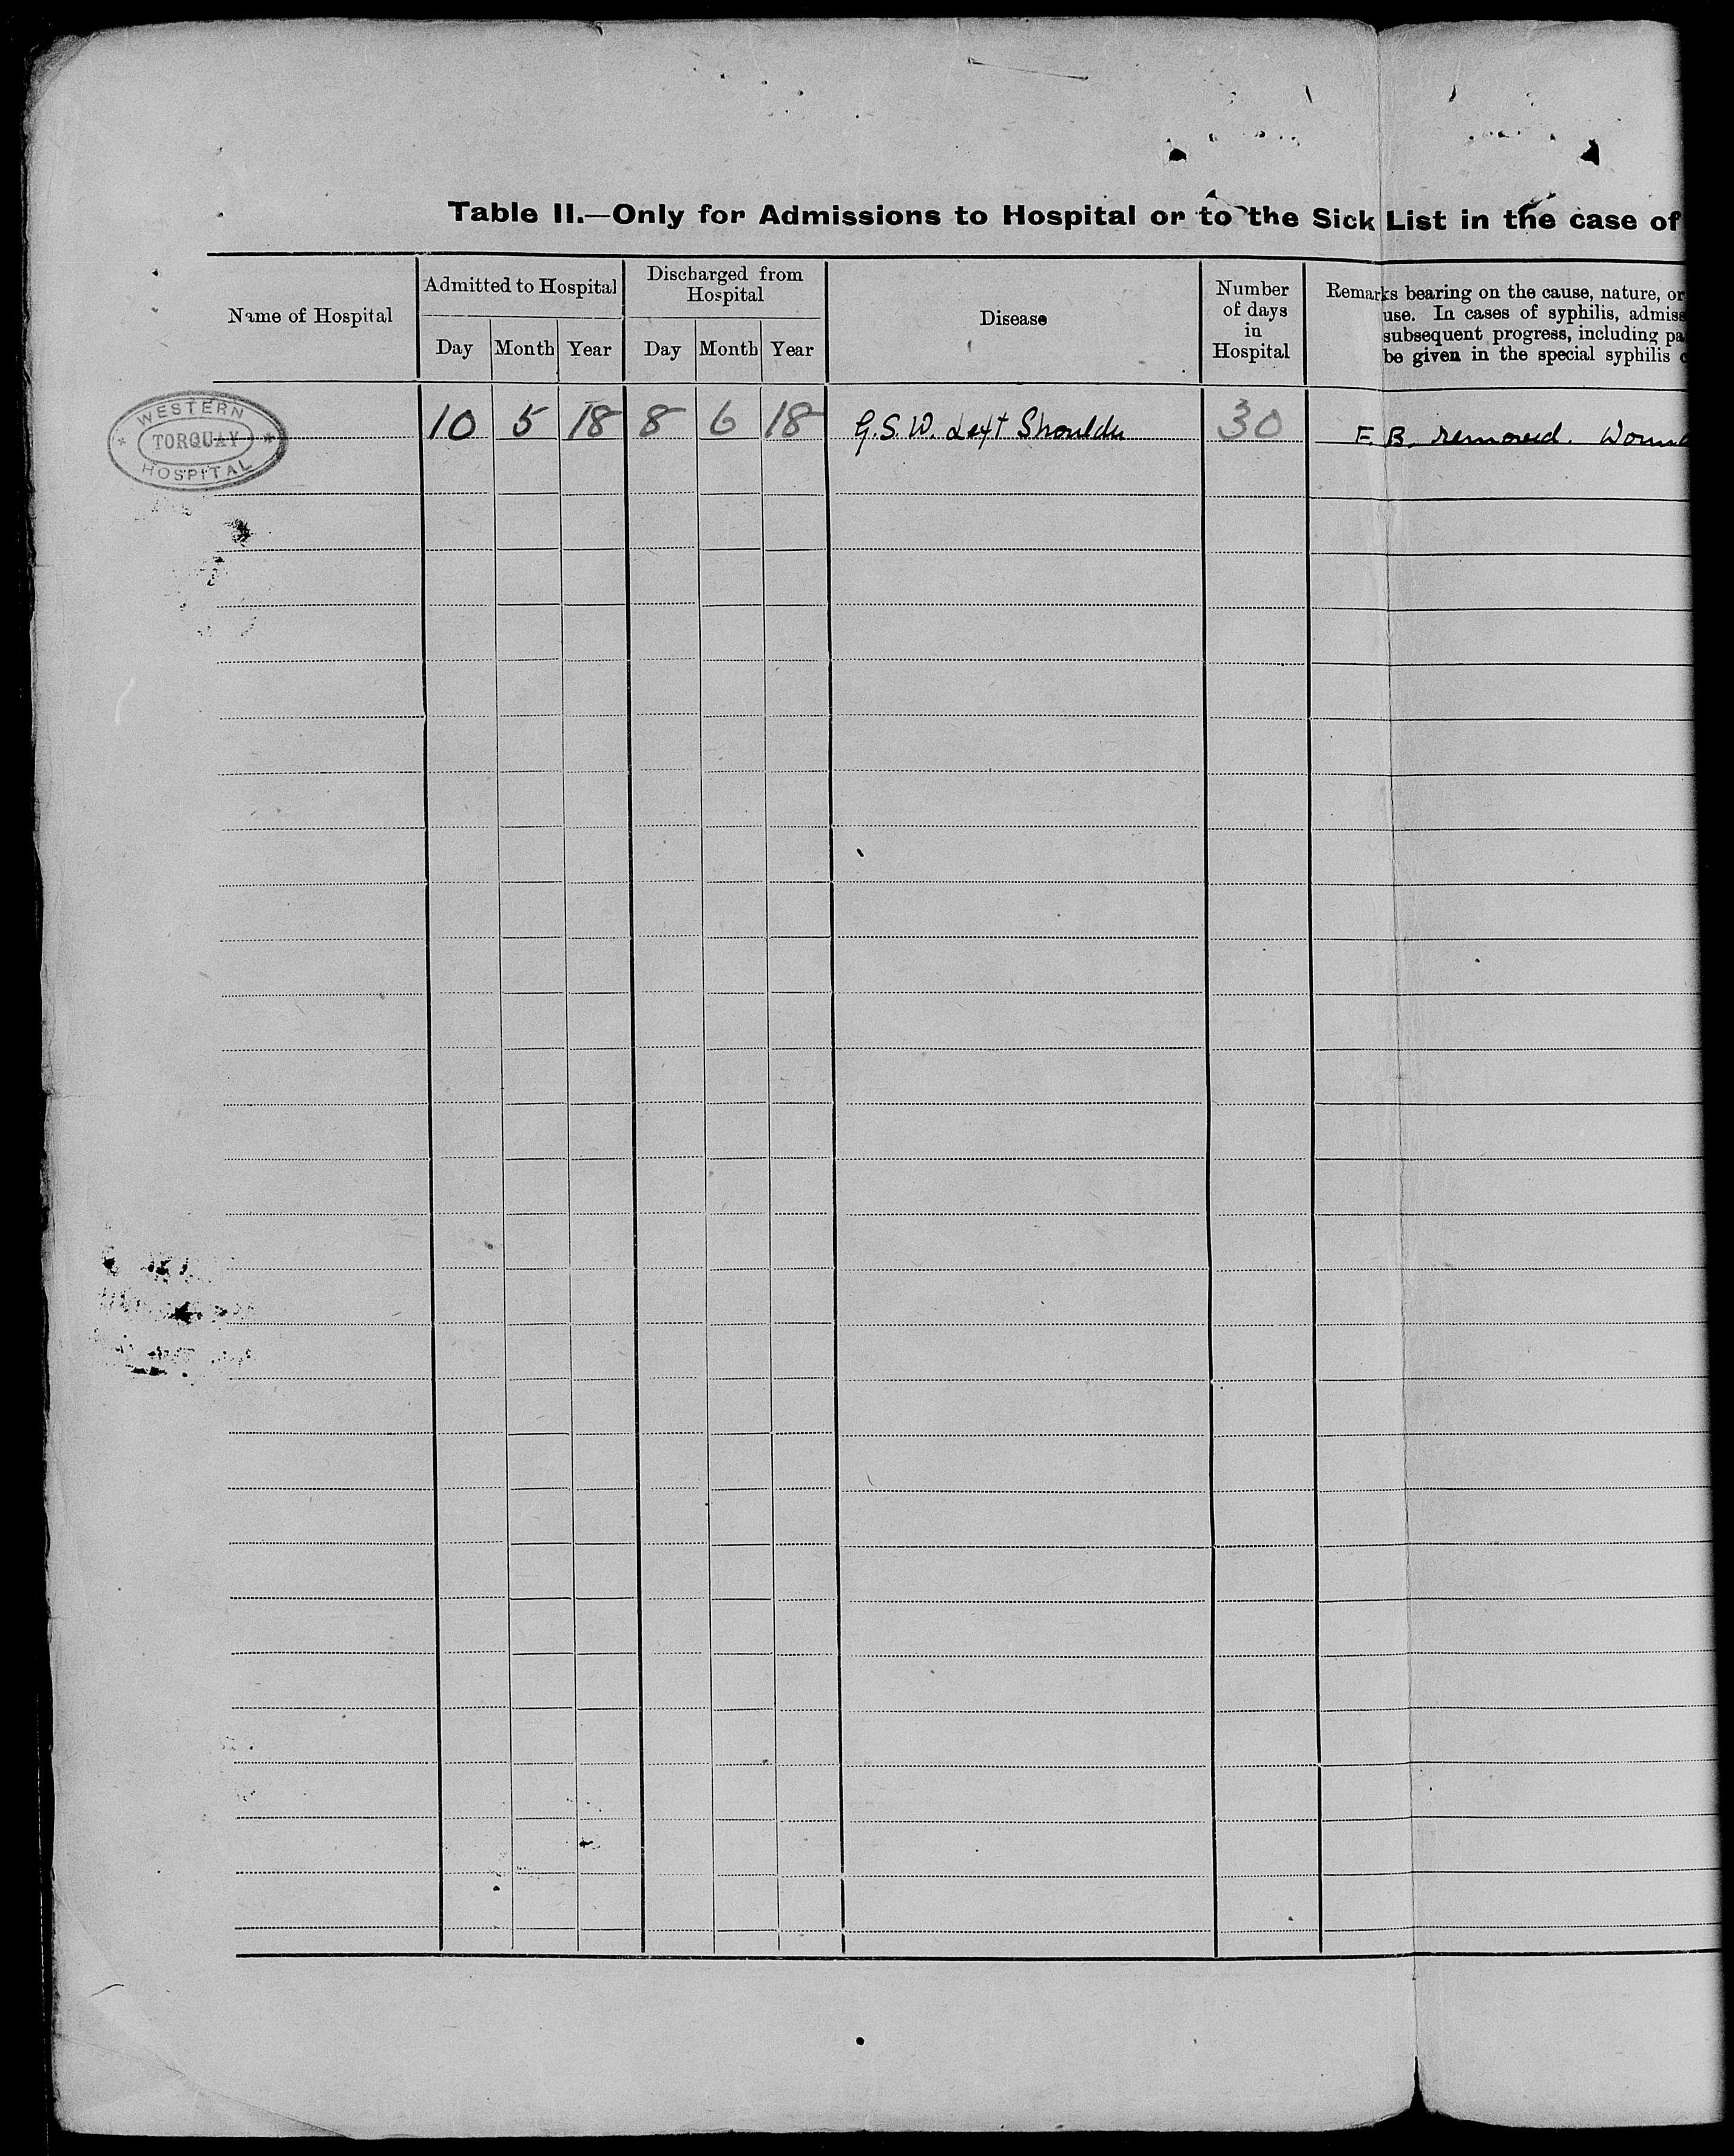 Table II.—Only for Admissions to Hospital or to the Sick List in the case of
Name of Hospital
Admitted to Hospital
Day Month Year
Discharged from
Hospital
Day Month Year
Disease
Number
of days
in
Hospital
Remarks bearing on the cause, nature, or
use. In cases of syphilis, admiss
subsequent progress, including pa
be given in the special syphilis c
WESTERN
TORQUAY
HOSPITAL
10 5 18 8 6 18 G.S.W. Left Shoulder 30 F.B. removed. Woun